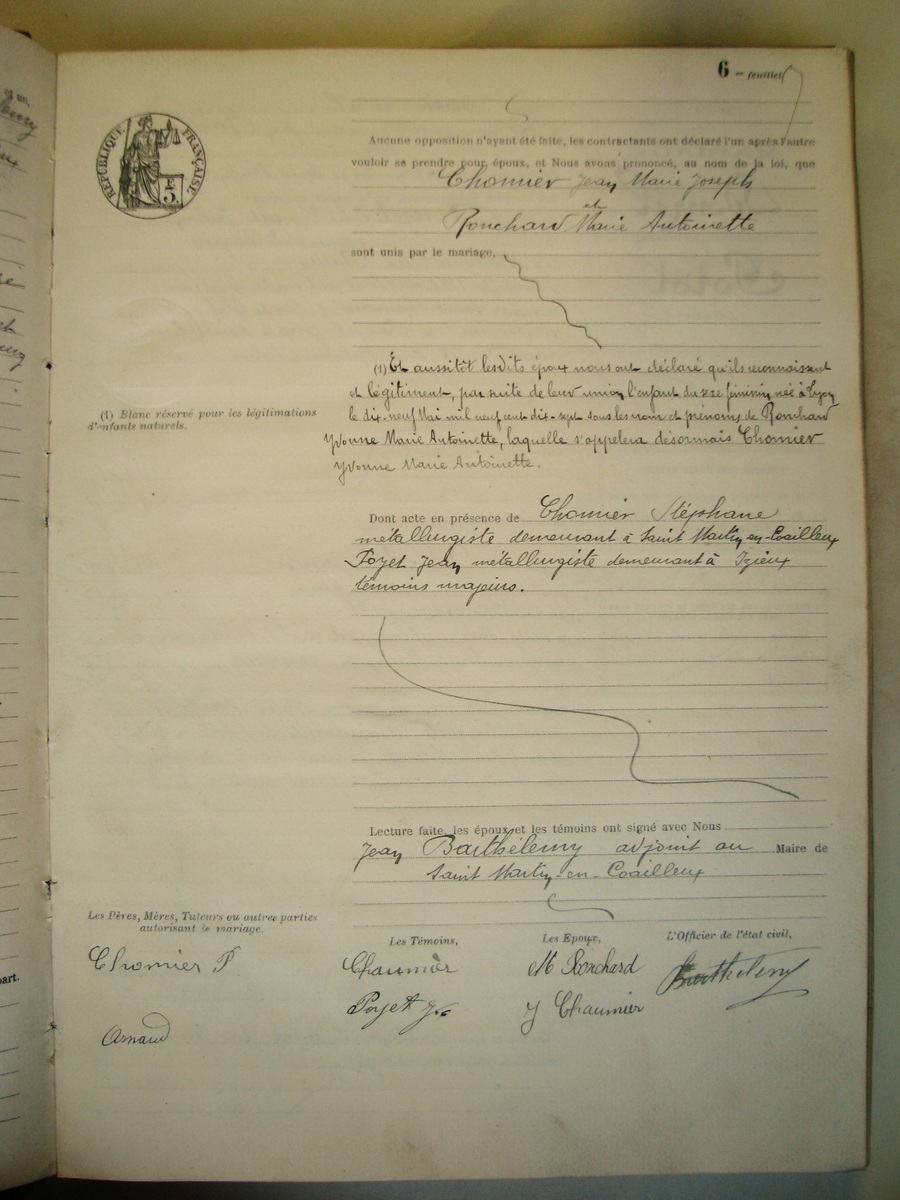 6 – feuillet
RÉPUBLIQUE FRANÇAISE
F
3.
Aucune opposition n'ayant été faite, les contractants ont déclaré l'un après l'autre
vouloir se prendre pour époux, et Nous avons prononcé, au nom de la loi, que
Chomier Jean Marie Joseph
et
Ronchard Marie Antoinette
sont unis par le mariage,
(1) Et aussitôt lesdits époux nous ont déclaré qu'ils reconnaissent
et légitiment, par suite de leur union l'enfant du sexe féminin née à Lyon
le dix-neuf Mai mil neuf cent dix-sept sous les nom et prénoms de Ronchard
Yvonne Marie Antoinette, laquelle s'appelera désormais Chomier
Yvonne Marie Antoinette.
(1) Blanc réservé pour les légitimations
d'enfants naturels.
Dont acte en présence de Chomier Stéphane
métallurgiste demeurant à Saint Martin-en-Coailleux
Poyet Jean métallurgiste demeurant à Izieux
témoins majeurs.
Lecture faite, les époux et les témoins ont signé avec Nous
Jean Barthélemy adjoint au Maire de
Saint Martin-en-Coailleux
Les Pères, Mères, Tuteurs ou autres parties
autorisant le mariage.
Les Témoins,
Les Epoux,
L'Officier de l'état civil,
Chomier P
Chaumièr
M Ronchard
Barthelemy
Poyet
J Chaumier
Arnaud